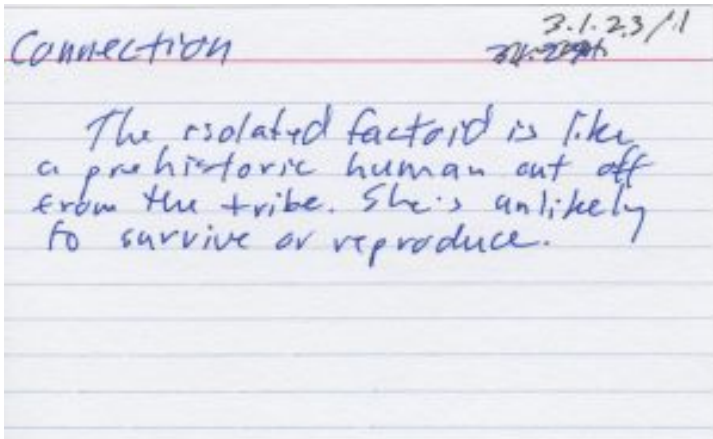 3.1.2.3/1.1
Connection
The isolated factoid is like
a prehistoric human cut off
from the tribe. She's unlikely
to survive or reproduce.